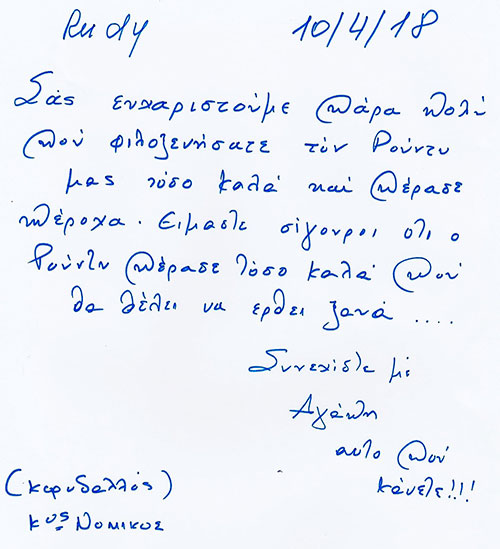 Rudy 10/4/18
Σας ευχαριστούμε πάρα πολύ
που φιλοξενήσατε τον Ρούντυ
μας τόσο καλά και πέρασε
υπέροχα. Ειμαστε σίγουροι οτι ο
Ρούντυ πέρασε τόσο καλά που
θα θέλει να ερθει ξανά ....
Συνεχίστε με
Αγάπη
αυτο που
κάνετε!!!
(κορυδαλλός)
κος Νομικος